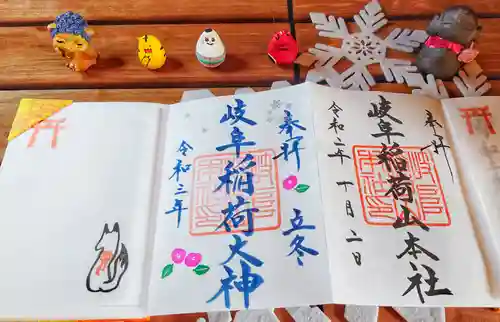 奉拝
岐阜稲荷山本社
令和二年十月二日
奉拝
立冬
岐阜稲荷大神
令和三年